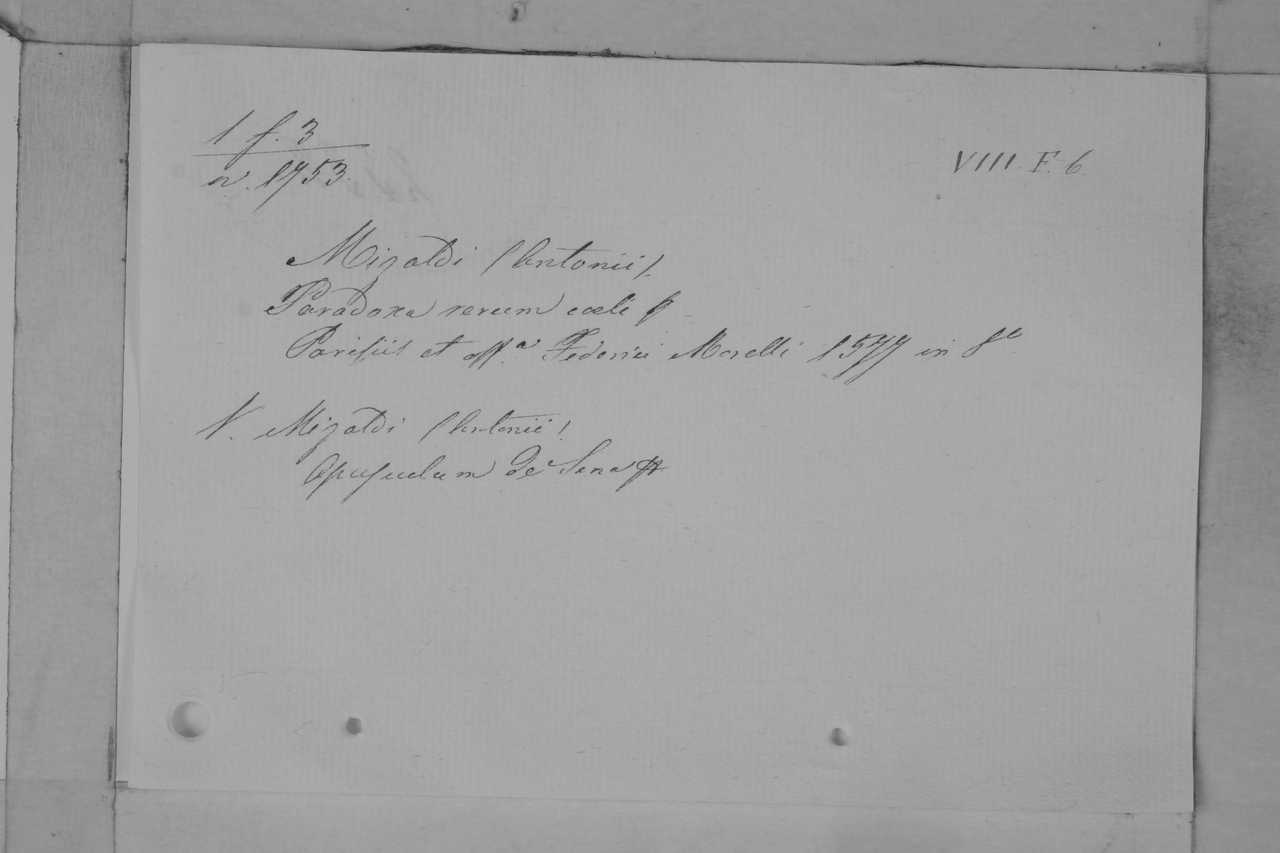 1 f. 3
n. 1753.
VIII F. 6
Mizaldi (Antonii).
Paradoxa rerum coeli
Parisiis et off.a Federici Morelli 1577 in 8o
V. Mizaldi (Antonii).
Opusculum de Sena